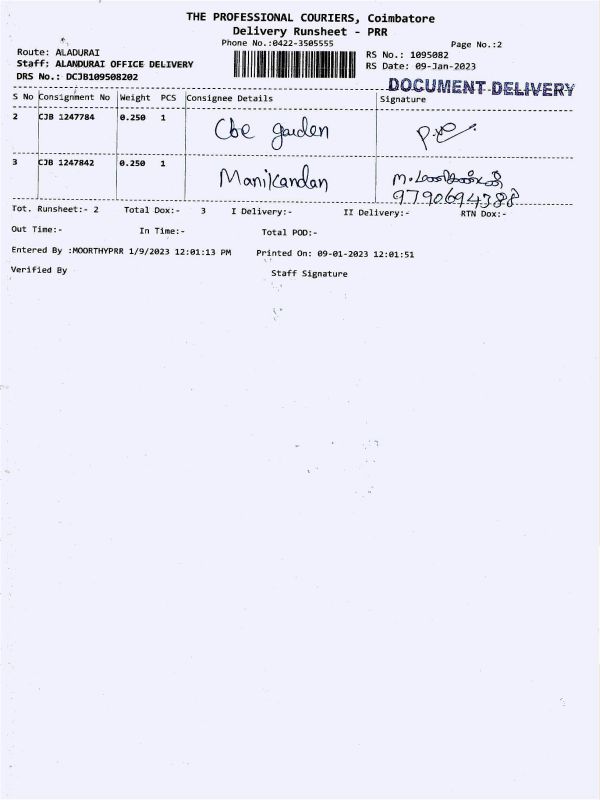 THE PROFESSIONAL COURIERS, Coimbatore
Delivery Runsheet - PRR
Phone No.:0422-3505555
Page No.:2
Route: ALADURAI
RS No.: 1095082
Staff: ALANDURAI OFFICE DELIVERY
RS Date: 09-Jan-2023
DRS No.: DCJB109508202
DOCUMENT DELIVERY
S No Consignment No Weight PCS Consignee Details Signature
2 CJB 1247784 0.250 1 Cbe garden
3 CJB 1247842 0.250 1 Manikandan
9790694388
Tot. Runsheet:- 2 Total Dox:- 3 I Delivery:- II Delivery:- RTN Dox:-
Out Time:- In Time:- Total POD:-
Entered By :MOORTHYPRR 1/9/2023 12:01:13 PM Printed On: 09-01-2023 12:01:51
Verified By Staff Signature